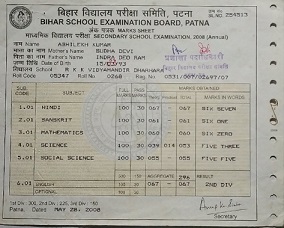 बिहार विद्यालय परीक्षा समिति, पटना
BIHAR SCHOOL EXAMINATION BOARD, PATNA
अंक पत्रक MARKS SHEET
माध्यमिक विद्यालय परीक्षा SECONDARY SCHOOL EXAMINATION, 2008 (Annual)
नाम Name ABHILEKH KUMAR
माता का नाम Mother's Name BUDHA DEVI
पिता का नाम Father's Name INDRA DEO RAM
School DHANARUA
Roll Code 05247 Roll No. 0268 Reg. No.
SUB CODE SUBJECT FULL MARKS PASS MARKS MARKS OBTAINED MARKS IN WORDS
1.01 HINDI 100 30 067 - 067 SIX SEVEN
2.01 SANSKRIT 100 30 061 - 061 SIX ONE
3.01 MATHEMATICS 100 30 060 - 060 SIX ZERO
4.01 SCIENCE 100 30 039 014 053 FIVE THREE
5.01 SOCIAL SCIENCE 100 30 055 - 055 FIVE FIVE
500 150 AGGREGATE 296
6.01 ENGLISH (OPTIONAL) 100 30 067 - 067 2ND DIV
1st Div : 300, 2nd Div : 225, 3rd Div : 150
Patna, Dated MAY 28, 2008
Secretary